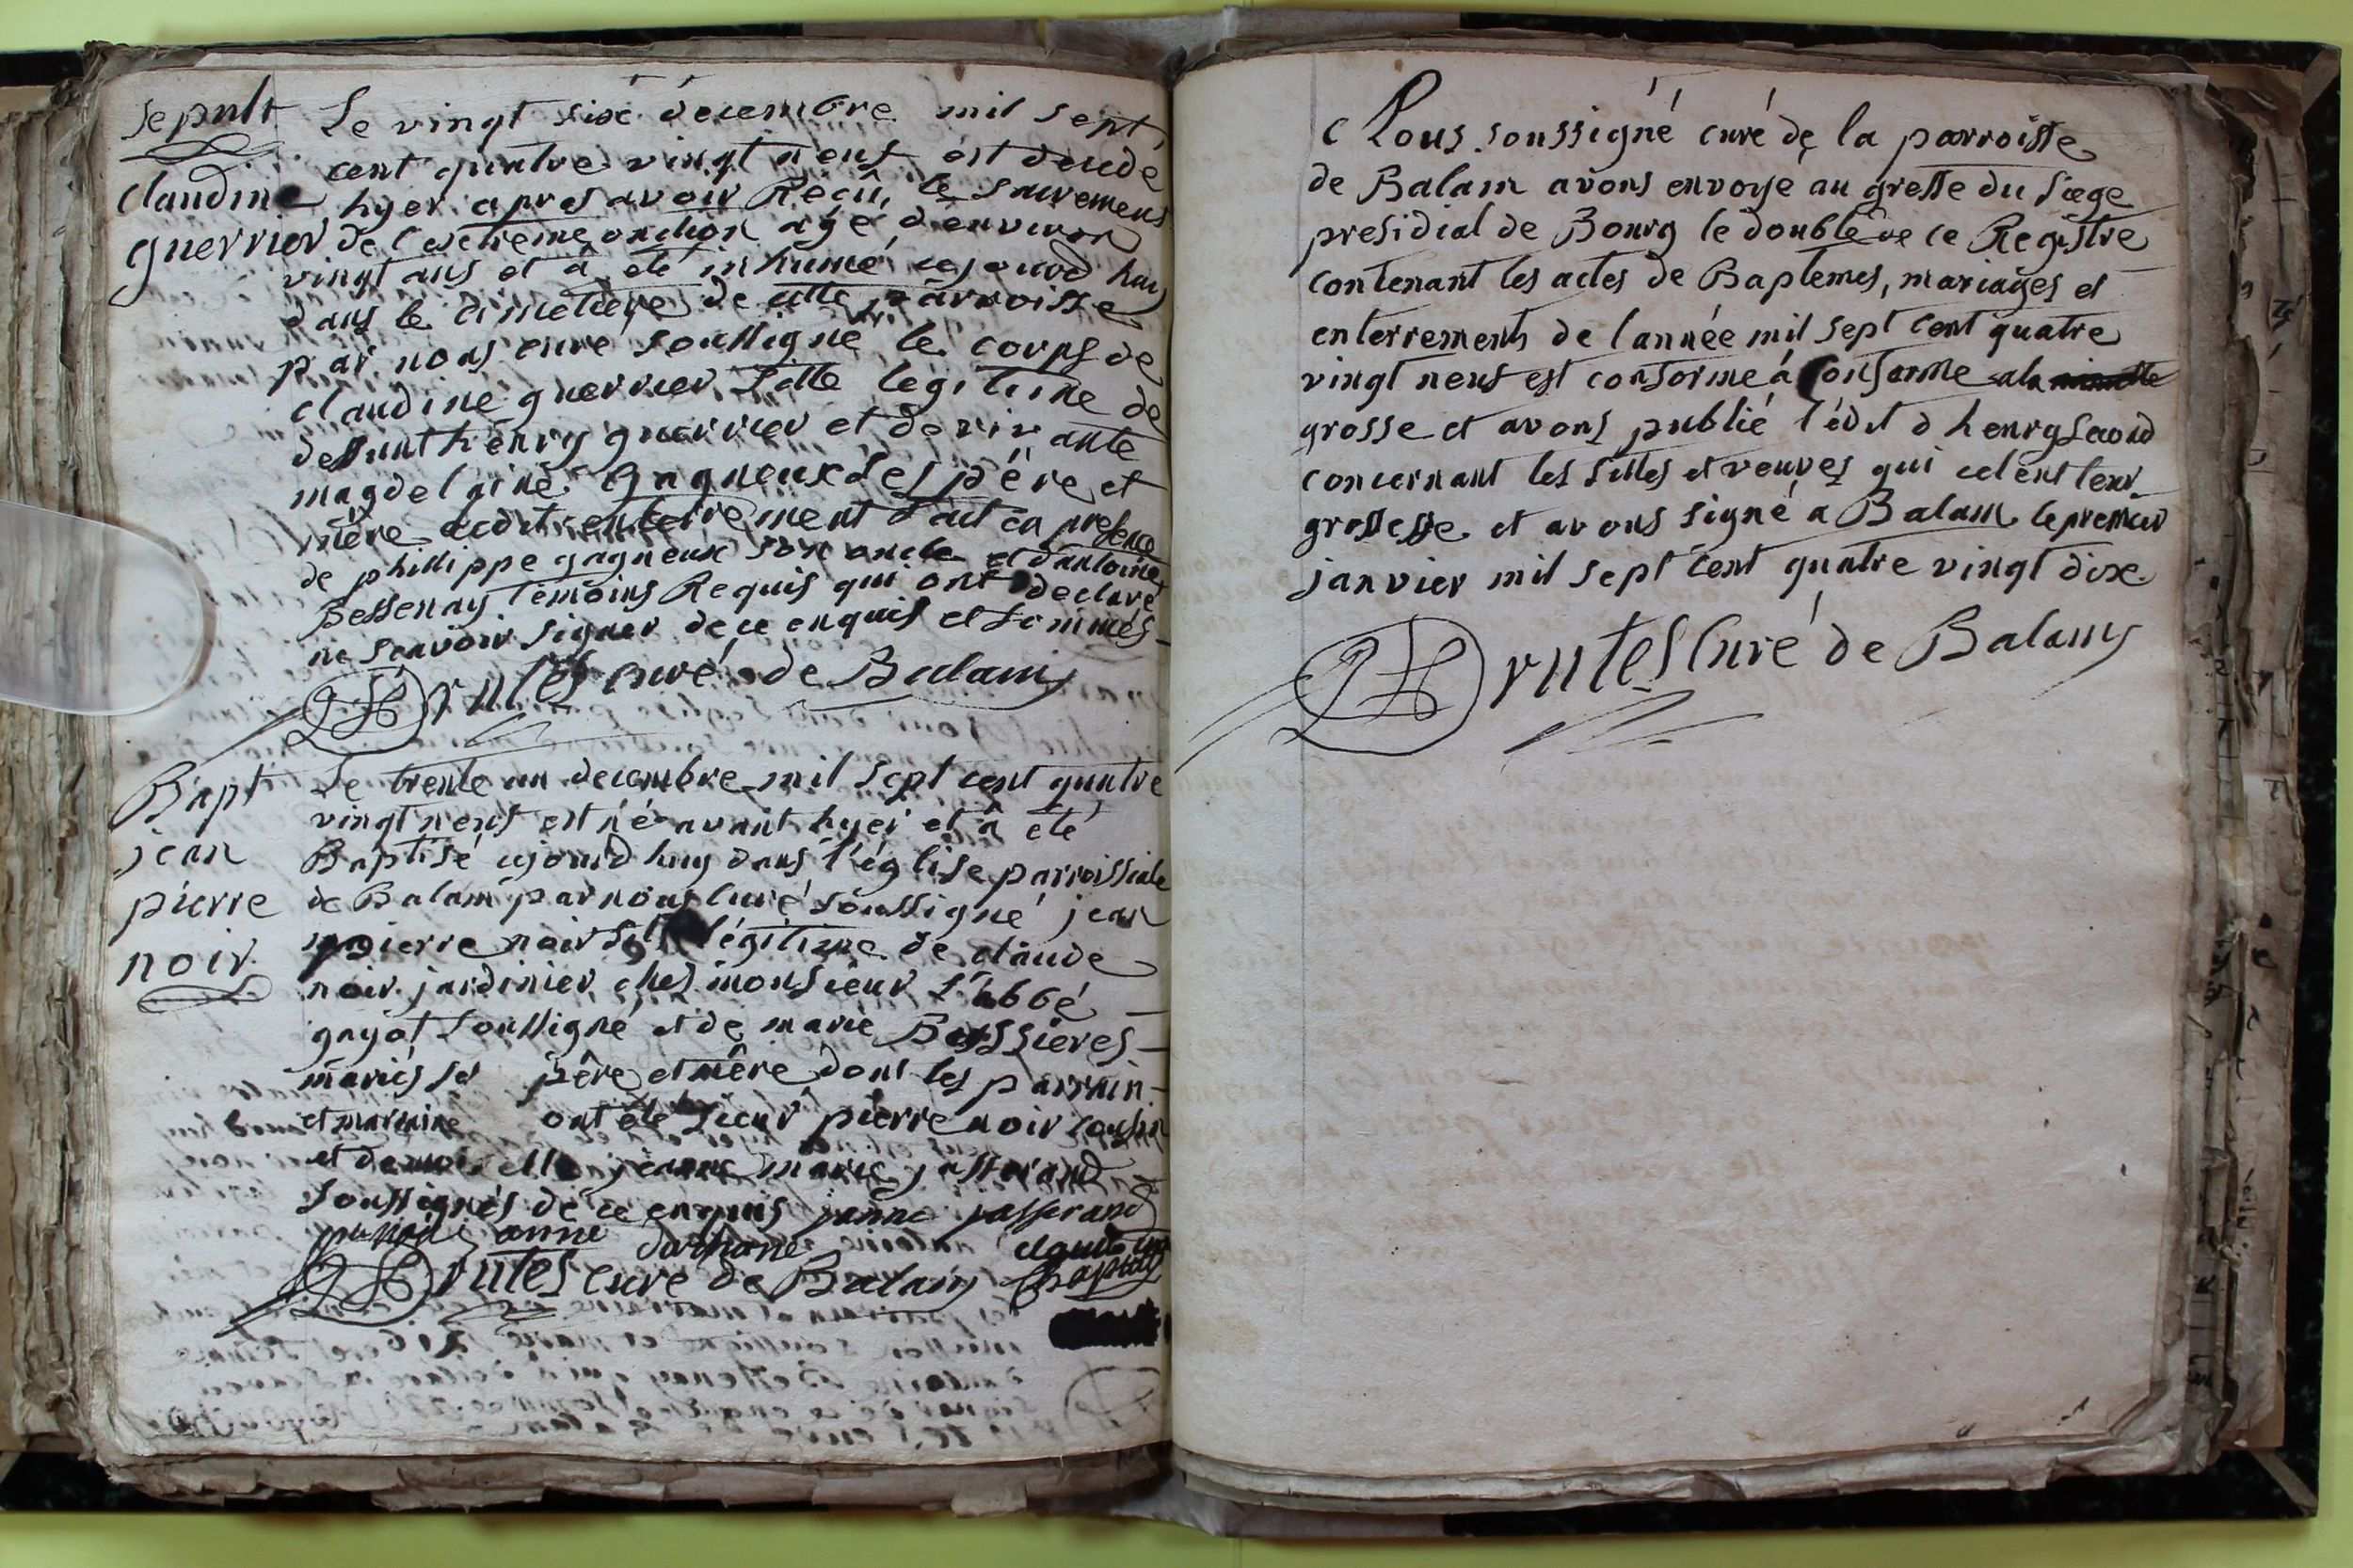 Sepult
Claudine
guerrier
Le vingt six décembre mil sept
cent quatre vingt neuf est decedé
hyer apres avoir Reçu le sacremens
de l'extreme onction agé d'environ
vingt ans et à été inhumé cejourd huy
dans le cimetiere de cette parroisse
par nous curé soussigné le corps de
claudine guerrier fille légitime de
deffunt henry guerrier et de vivante
magdelaine gagneux ses père et
mère ledit enterrement fait en presence
de philippe gagneux son oncle et d'antoine
Bessenay témoins Requis qui ont declaré
ne scavoir signer de ce enquis et sommés
rutes curé de Balam
Bapt
jean
pierre
noir
Le trente un decembre mil sept cent quatre
vingt neuf est né avant hyer et à été
Baptisé cejourd huy dans l'église parroissiale
de Balam par nous curé soussigné jean
pierre noir fils légitime de claude
noir jardinier chez monsieur l'abbé
guyot soussigné et de marie Bussieres
mariés ses père et mère dont les parrain
et marraine ont été sieur pierre noir cousin
et demoiselle jeanne marie jasserand
soussignés de ce enquis janne jasserand
anne
rutes curé de Balam
Nous soussigné curé de la parroisse
de Balam avons envoyé au greffe du siege
presidial de Bourg le double de ce Registre
contenant les actes de Baptemes, mariages et
enterrements de l'année mil sept cent quatre
vingt neuf est conforme à conforme a la
grosse et avons publié l'édit d henry second
concernant les filles et veuves qui celent leur
grossesse et avons signé a Balam le premier
janvier mil sept cent quatre vingt dix
rutes Curé de Balam